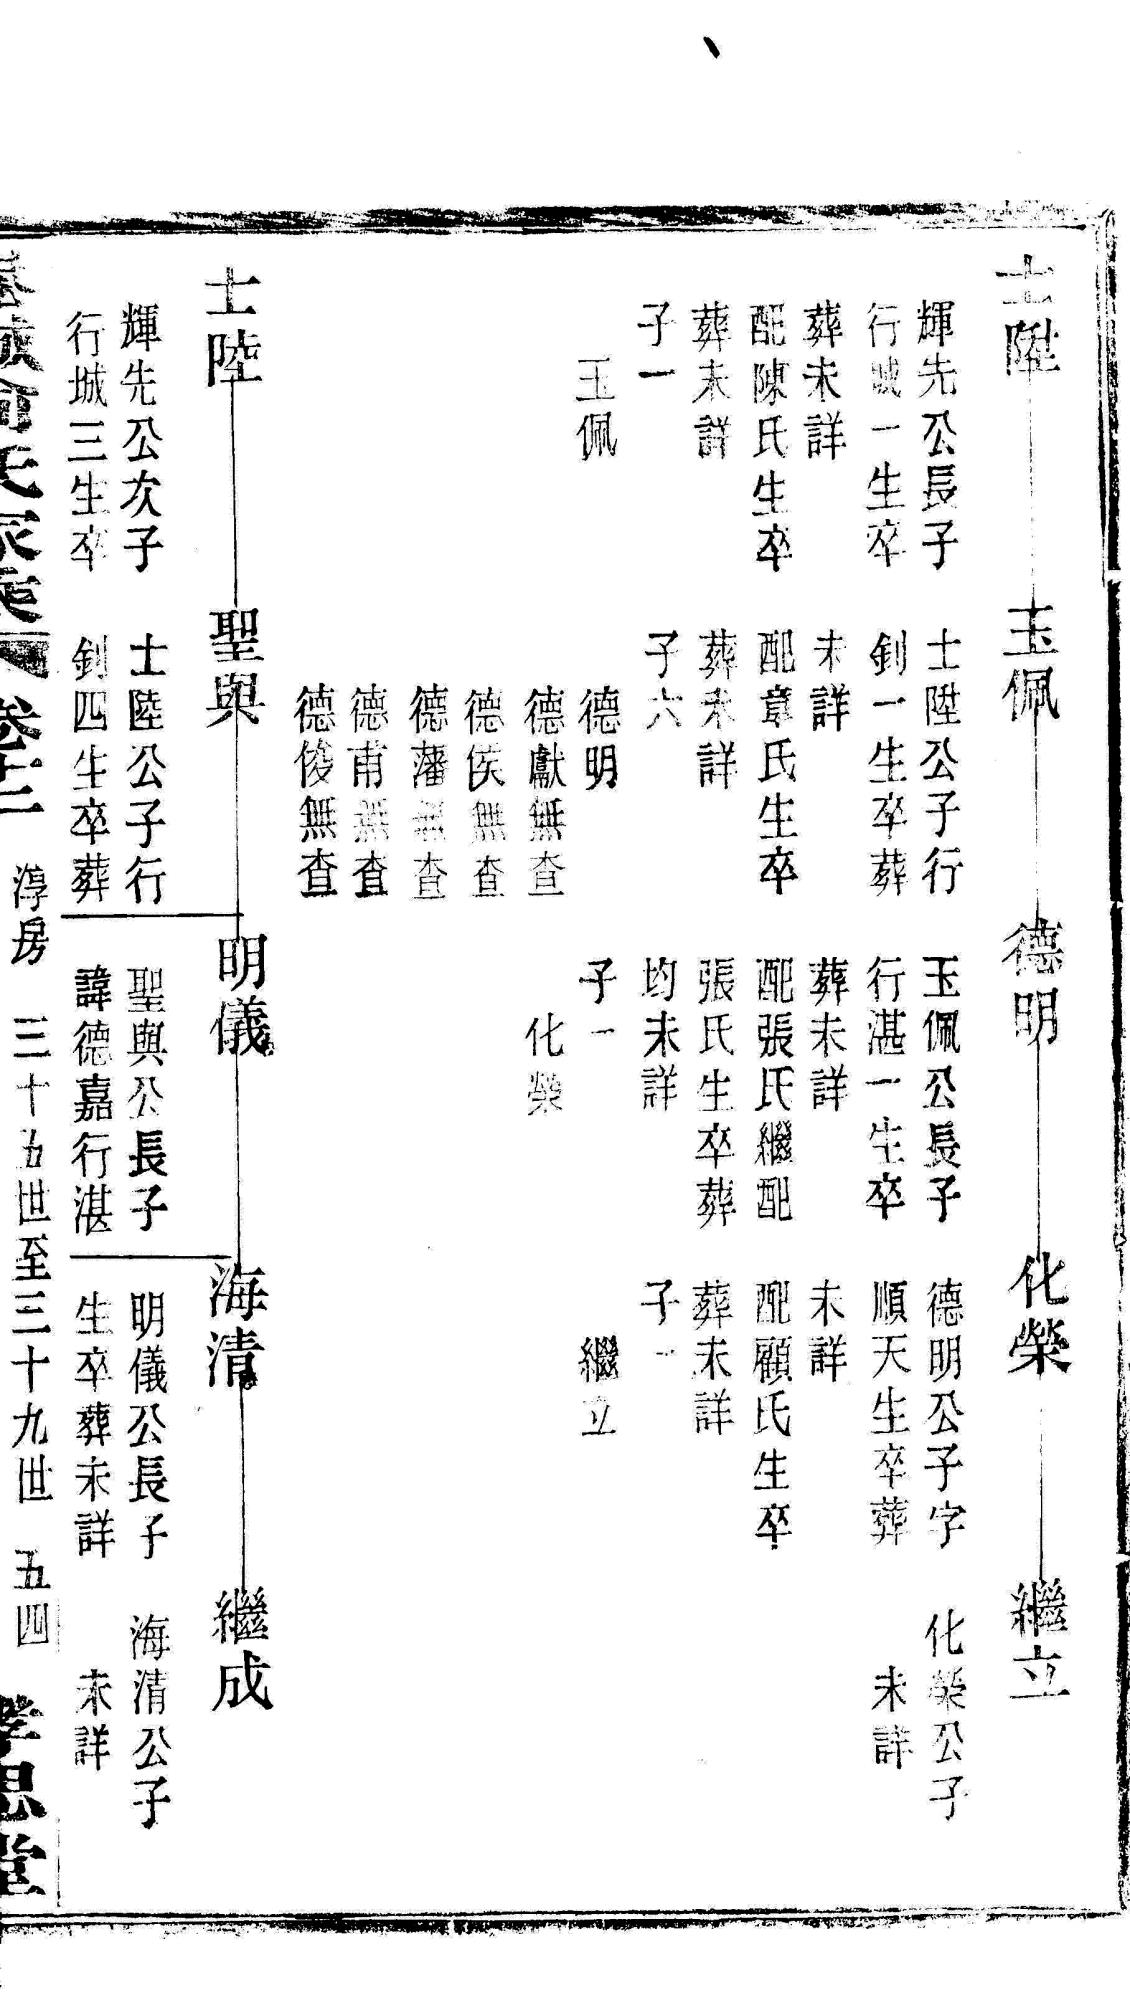 士陞
輝先公長子
行城一生卒
葬未詳
配陳氏生卒
葬未詳
子一
玉佩
玉佩
士陞公子行
釗一生卒葬
未詳
配章氏生卒
葬未詳
子六
德明
德獻無查
德侯無查
德藩無查
德甫無查
德俊無查
德明
玉佩公長子
行湛一生卒
葬未詳
配張氏繼配
張氏生卒葬
均未詳
子一
化榮
化榮
德明公子字
順天生卒葬
未詳
配顧氏生卒
葬未詳
子一
繼立
繼立
化榮公子
未詳
士陸
輝先公次子
行城三生卒
聖與
士陸公子行
釗四生卒葬
明儀
聖與公長子
諱德嘉行湛
海清
明儀公長子
生卒葬未詳
繼成
海清公子
未詳
俞氏家乘 卷十二 淳房 三十五世至三十九世 五四 孝思堂